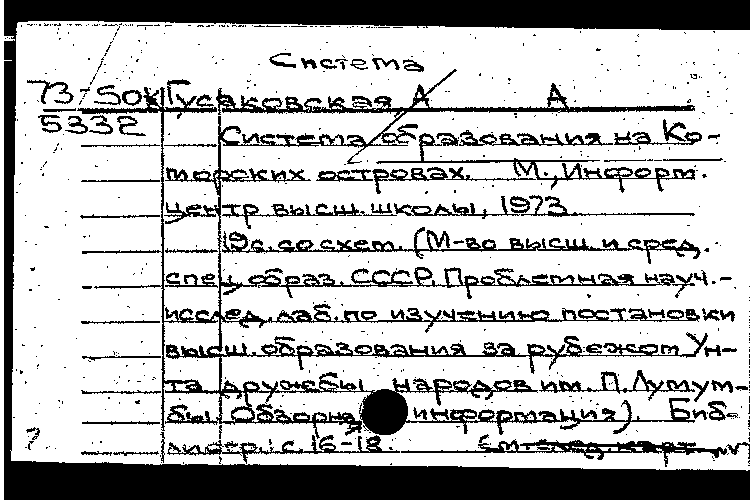 Система
73-50к Гусаковская А А
5332
Система образования на Ко-
морских островах. М., Информ.
центр высш. школы, 1973
19с. со схем. (М-во высш. и сред.
спец. образ. СССР. Проблемная науч.-
исслед. лаб. по изучению постановки
высш. образования за рубежом Ун-
та дружбы народов им. П. Лумум-
бы. Обзорная информация). Биб-
лиогр.: с. 16-18. См. след. карт